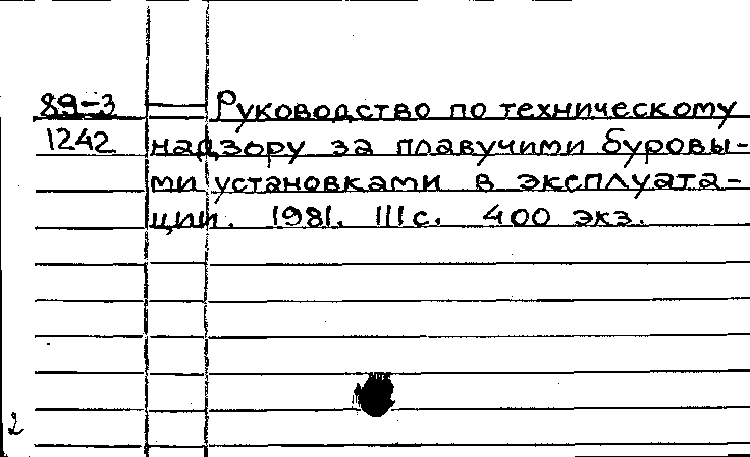 89-3 — Руководство по техническому
1242 надзору за плавучими буровы-
ми установками в эксплуата-
ции. 1981. 111 с. 400 экз.
2